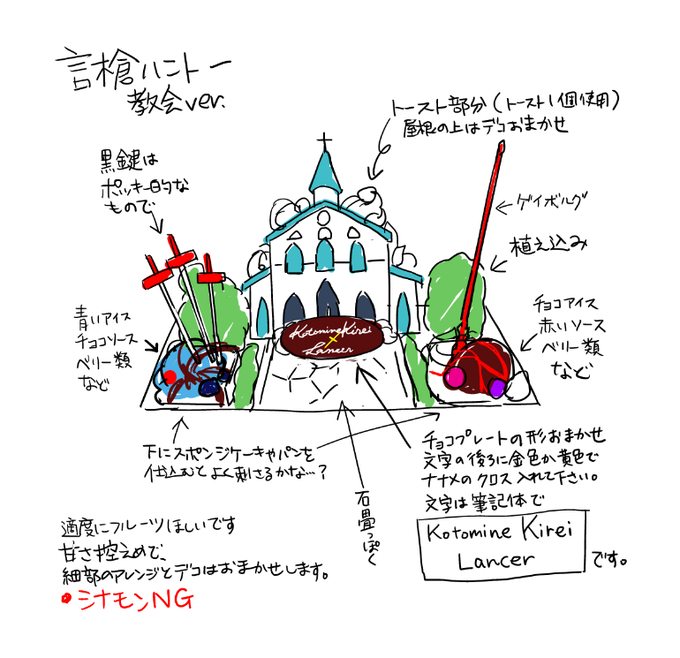 言槍ハニトー
教会ver.
トースト部分(トースト1個使用)
屋根の上はデコおまかせ
黒鍵は
ポッキー的な
もので
ゲイボルグ
植え込み
青いアイス
チョコソース
ベリー類
など
Kotomine Kirei
×
Lancer
チョコアイス
赤いソース
ベリー類
など
下にスポンジケーキやパンを
仕込むとよく刺さるかな…?
石畳っぽく
チョコプレートの形おまかせ
文字の後ろに金色か黄色で
ナナメのクロス入れて下さい。
文字は筆記体で
Kotomine Kirei
Lancer
です。
適度にフルーツほしいです
甘さ控えめで、
細部のアレンジとデコはおまかせします。
●シナモンNG